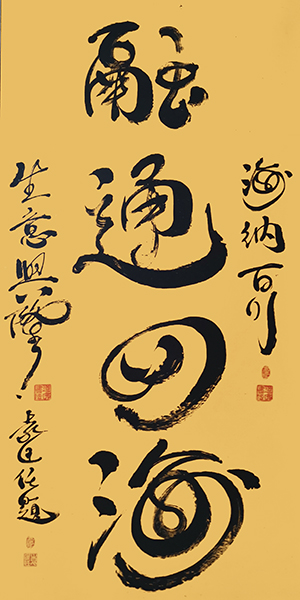 海纳百川
融通四海
生意興隆